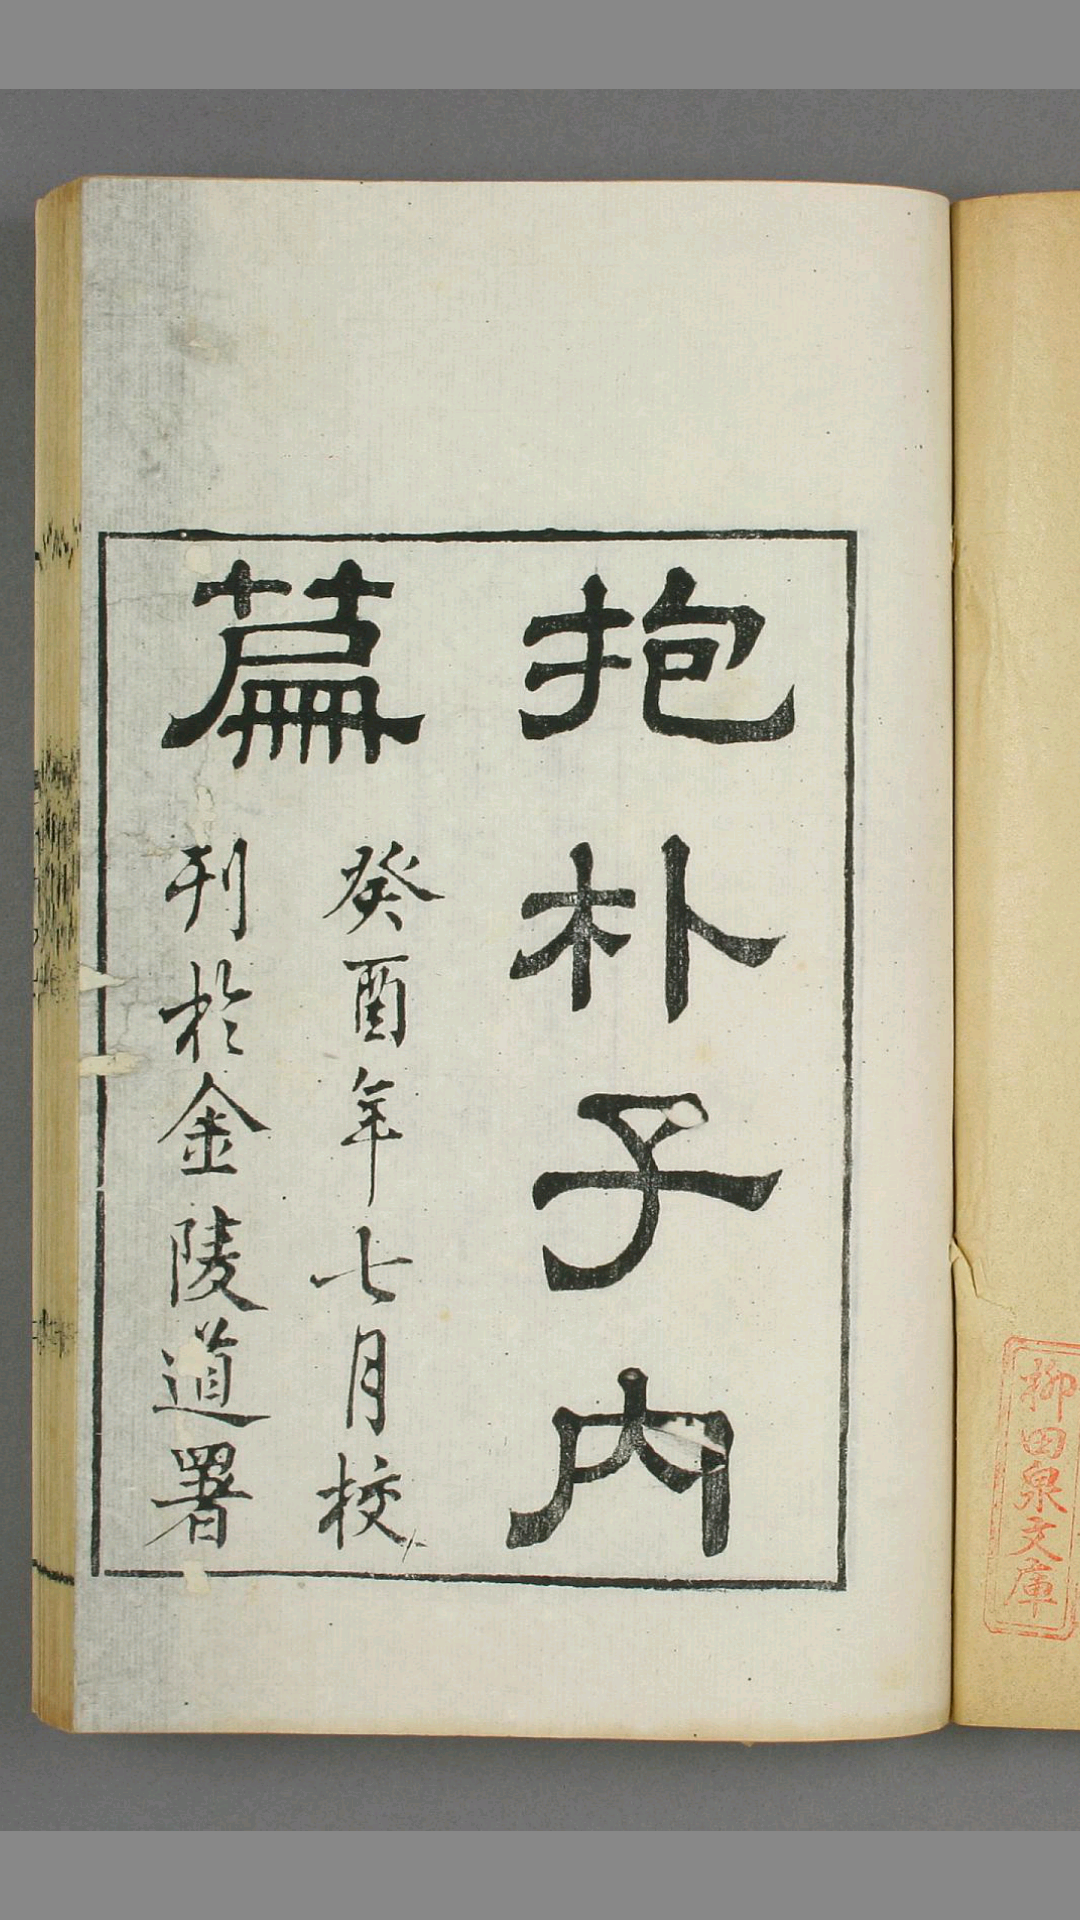 柳田泉文庫
抱朴子內
篇
癸酉年七月校
刊於金陵道署